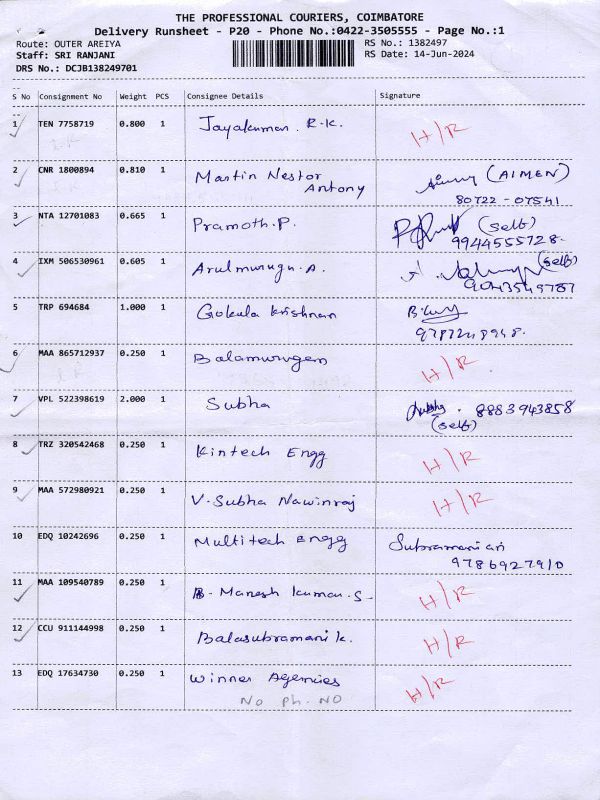 THE PROFESSIONAL COURIERS, COIMBATORE
Delivery Runsheet - P20 - Phone No.:0422-3505555 - Page No.:1
Route: OUTER AREIYA
RS No.: 1382497
Staff: SRI RANJANI
RS Date: 14-Jun-2024
DRS No.: DCJB138249701
S No Consignment No Weight PCS Consignee Details Signature
1 TEN 7758719 0.800 1 Jayakumar. R.K. H/R
2 CNR 1800894 0.810 1 Martin Nestor (AIMEN)
Antony 80722-07541
3 NTA 12701083 0.665 1 Pramoth.P. (self)
9944555728.
4 IXM 506530961 0.605 1 Arulmurugn.A. (self)
9043549787
5 TRP 694684 1.000 1 Gokula krishnan
9787248948.
6 MAA 865712937 0.250 1 Balamurugan H/R
7 VPL 522398619 2.000 1 Subha 8883943858
(self)
8 TRZ 320542468 0.250 1 Kintech Engg H/R
9 MAA 572980921 0.250 1 V.Subha Nawinraj H/R
10 EDQ 10242696 0.250 1 Multitech Engg Subramanian
9786927910
11 MAA 109540789 0.250 1 B. Manesh kumar.S- H/R
12 CCU 911144998 0.250 1 Balasubramani k. H/R
13 EDQ 17634730 0.250 1 Winner Agencies H/R
NO Ph. NO